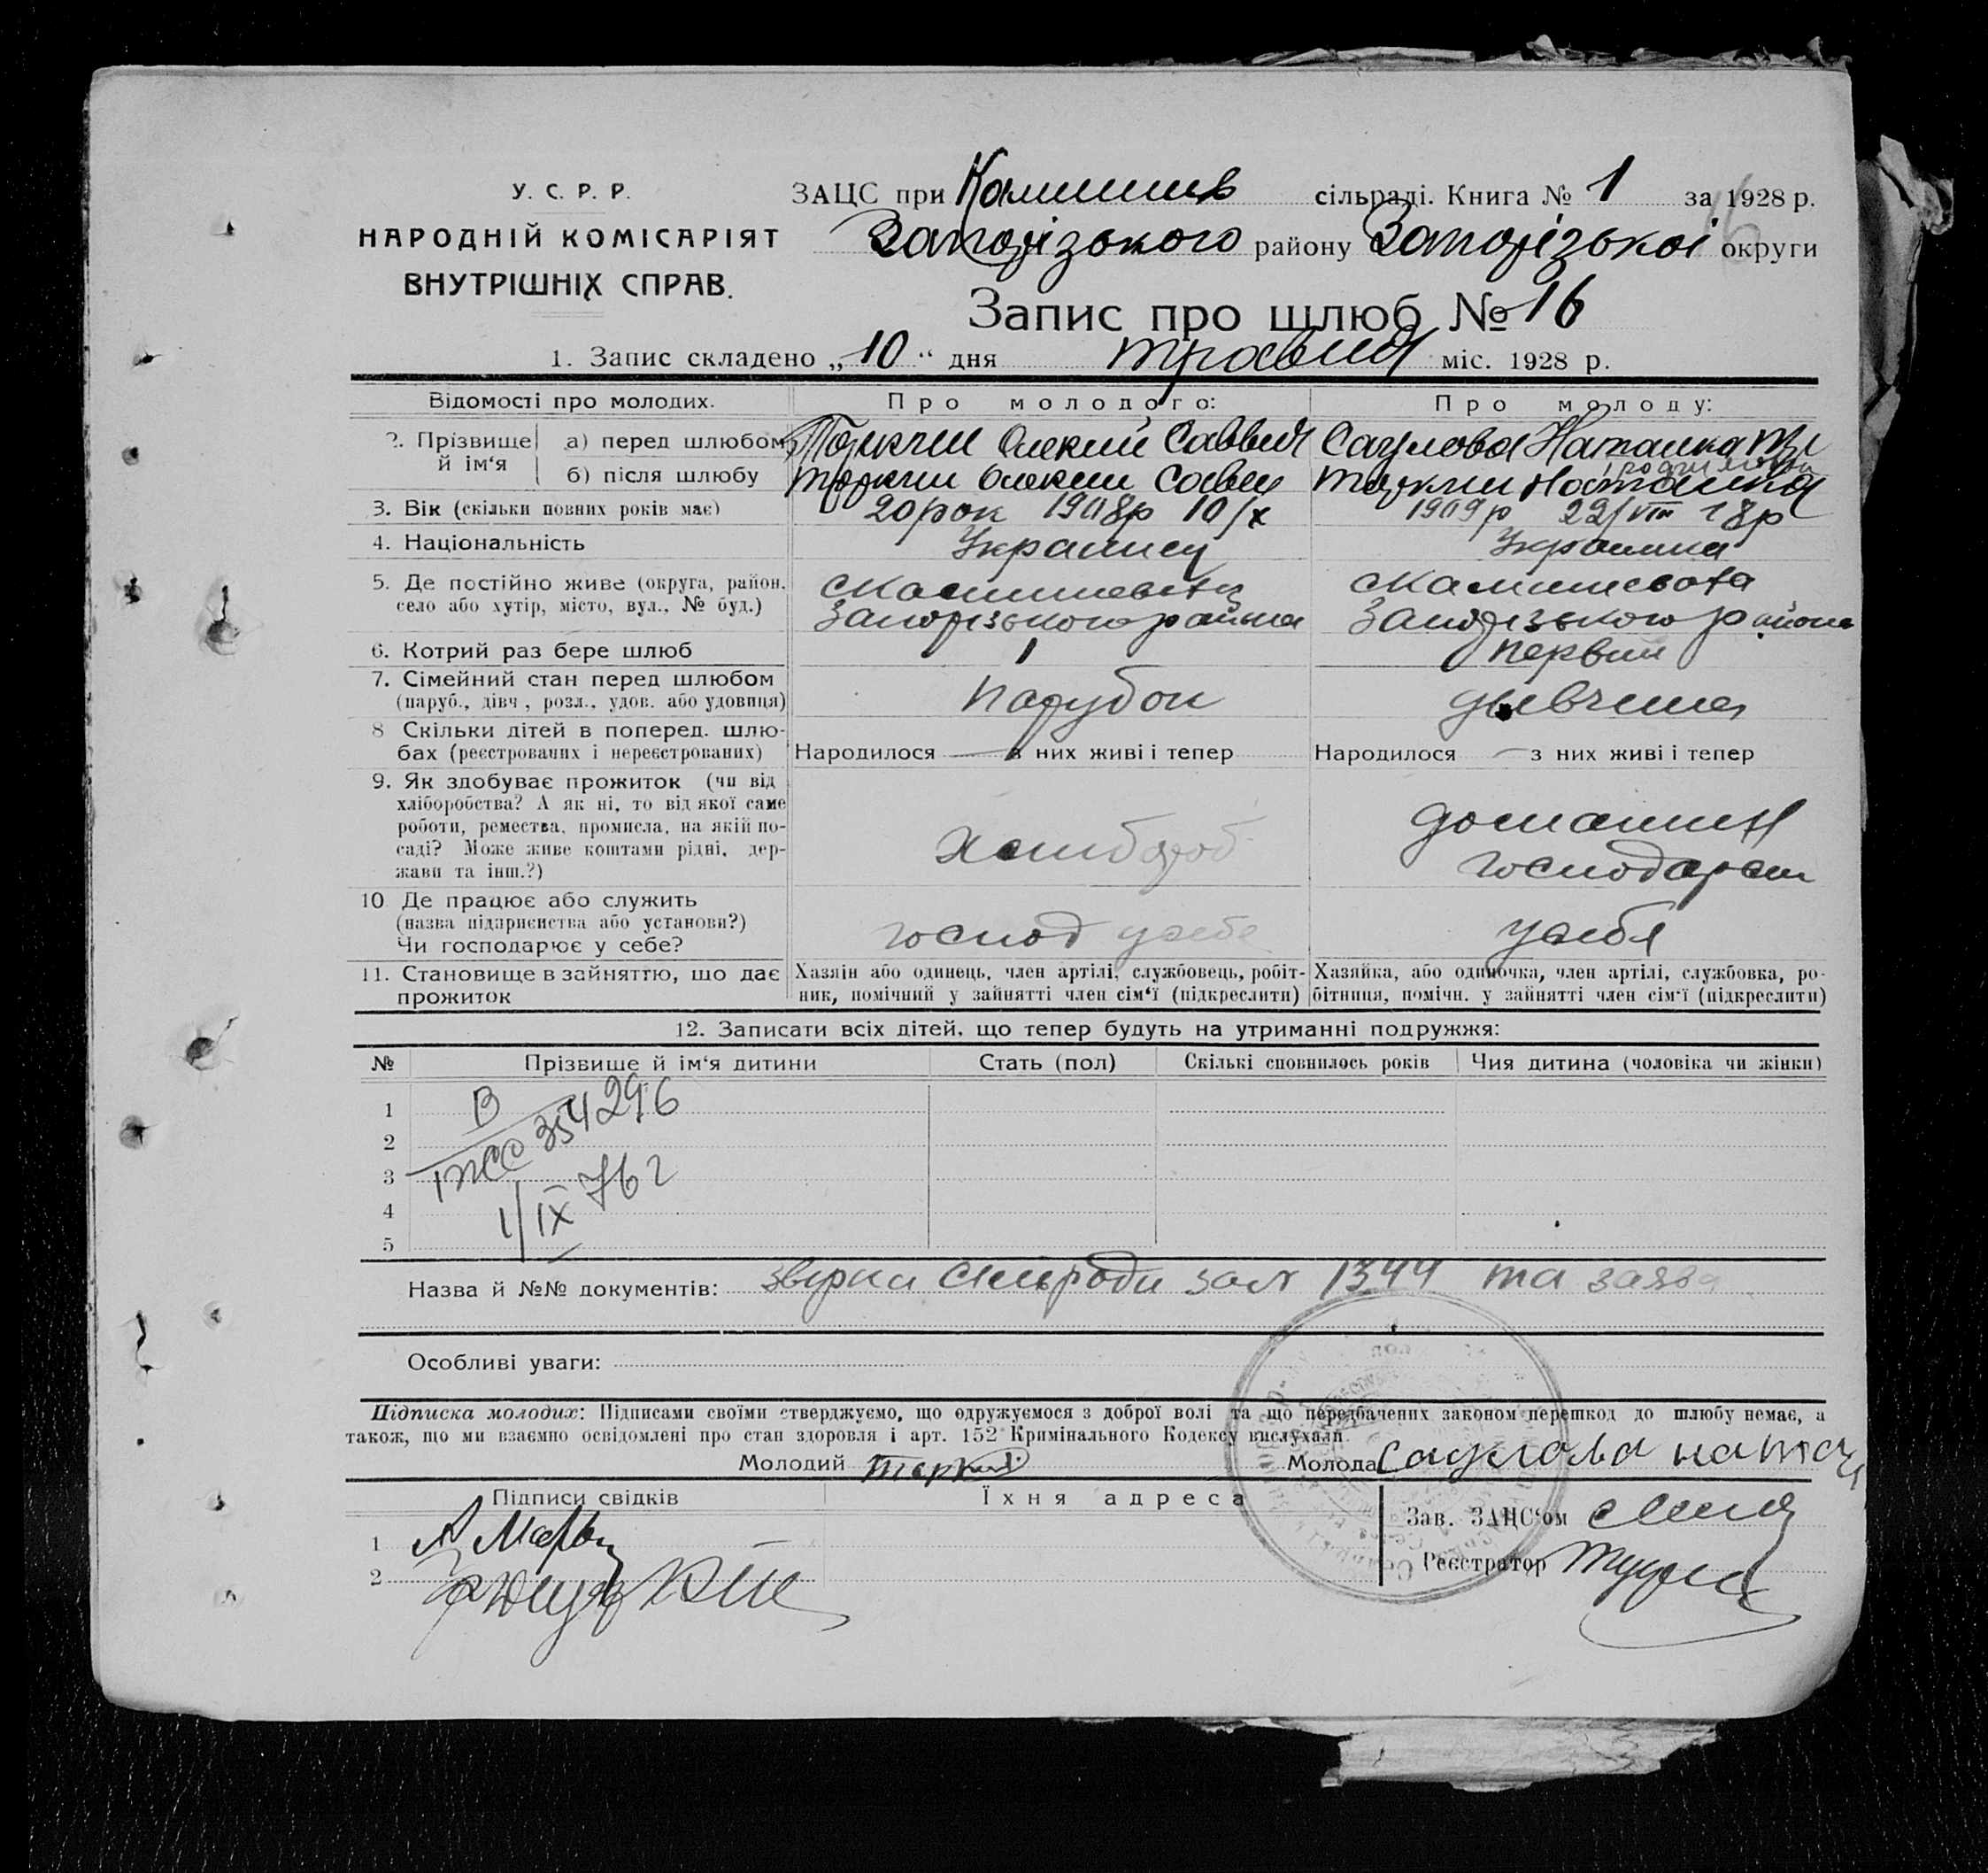 У. С. Р. Р.
НАРОДНІЙ КОМІСАРІЯТ
ВНУТРІШНІХ СПРАВ.
ЗАЦС при сільраді. Книга № 1 за 1928 р.
16
Запорізького району Запорізькоі округи
Запис про шлюб № 16
1. Запис складено „10“ дня травня міс. 1928 р.
Відомості про молодих.
Про молодого:
Про молоду:
2. Прізвище й ім‘я
а) перед шлюбом
Саулова Наталка
б) після шлюбу
Наталка
3. Вік (скільки повних років має)
20 рок 1908р 10/X
1909р 22/VIII 18р
4. Національність
Украінец
Украинка
5. Де постійно живе (округа, район,
село або хутір, місто, вул., № буд.)
Запорізького района
Запорізького района
6. Котрий раз бере шлюб
1
первий
7. Сімейний стан перед шлюбом
(паруб., дівч., розл., удов. або удовиця)
Парубок
дывчина
8 Скільки дітей в поперед. шлю-
бах (реєстрованих і нереєстрованих)
Народилося — з них живі і тепер
Народилося — з них живі і тепер
9. Як здобуває прожиток (чи від
хліборобства? А як ні, то від якої саме
роботи, ремества, промисла, на якій по-
саді? Може живе коштами рідні, дер-
жави та інш.?)
хлибороб
домашня
господарем
10 Де працює або служить
(назва підприємства або установи?)
Чи господарює у себе?
господ усебе
усебя
11. Становище в зайняттю, що дає
прожиток
Хазяін або одинець, член артілі, службовець, робіт-
ник, помічний у зайнятті член сім‘ї (підкреслити)
Хазяйка, або одиночка, член артілі, службовка, ро-
бітниця, помічн. у зайнятті член сім‘ї (підкреслити)
12. Записати всіх дітей, що тепер будуть на утриманні подружжя:
№ Прізвище й ім‘я дитини Стать (пол) Скількі сповнилось років Чия дитина (чоловіка чи жінки)
1
2
3
4
5
В
354296
1/IX 76 г
Назва й №№ документів: 1344 та заява
Особливі уваги:
Підписка молодих: Підписами своїми стверджуємо, що одружуємося з доброї волі та що передбачених законом перешкод до шлюбу немає, а
також, що ми взаємно освідомлені про стан здоровля і арт. 152 Кримінального Кодексу вислухали.
Молодий
Молода Саулова
Підписи свідків
Їхня адреса
1
2
Зав. ЗАЦС‘ом
Реєстратор